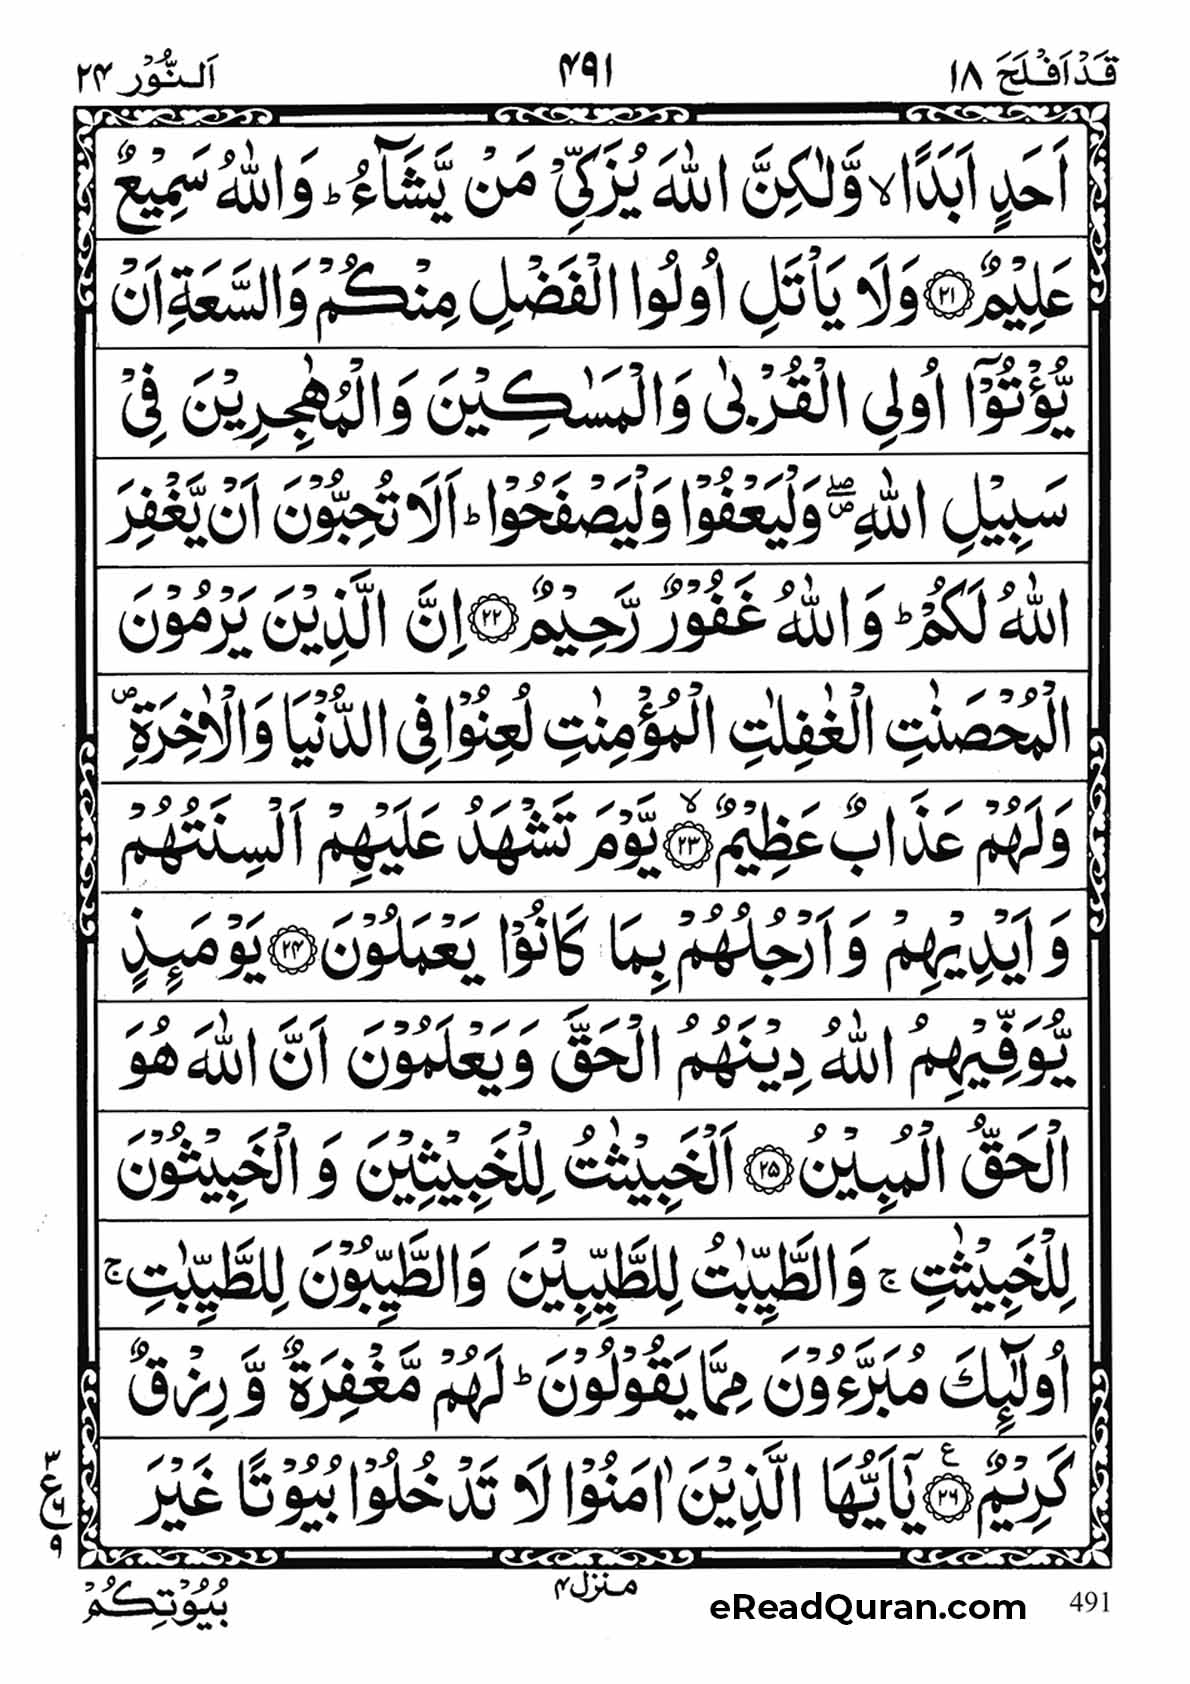 قَدْ اَفْلَحَ ١٨ ۴۹۱ اَلنُّوْر ٢۴
اَحَدٍ اَبَدًا ۙ وَّلٰكِنَّ اللّٰهَ يُزَكِّيْ مَنْ يَّشَآءُ ؕ وَاللّٰهُ سَمِيْعٌ
عَلِيْمٌ ﴿۲۱﴾ وَلَا يَاْتَلِ اُولُوا الْفَضْلِ مِنْكُمْ وَالسَّعَةِ اَنْ
يُّؤْتُوْۤا اُولِي الْقُرْبٰى وَالْمَسٰكِيْنَ وَالْمُهٰجِرِيْنَ فِيْ
سَبِيْلِ اللّٰهِ ۪ۖ وَلْيَعْفُوْا وَلْيَصْفَحُوْا ؕ اَلَا تُحِبُّوْنَ اَنْ يَّغْفِرَ
اللّٰهُ لَكُمْ ؕ وَاللّٰهُ غَفُوْرٌ رَّحِيْمٌ ﴿۲۲﴾ اِنَّ الَّذِيْنَ يَرْمُوْنَ
الْمُحْصَنٰتِ الْغٰفِلٰتِ الْمُؤْمِنٰتِ لُعِنُوْا فِي الدُّنْيَا وَالْاٰخِرَةِ ۪
وَلَهُمْ عَذَابٌ عَظِيْمٌ ﴿۲۳﴾ ۙ يَّوْمَ تَشْهَدُ عَلَيْهِمْ اَلْسِنَتُهُمْ
وَاَيْدِيْهِمْ وَاَرْجُلُهُمْ بِمَا كَانُوْا يَعْمَلُوْنَ ﴿۲۴﴾ يَوْمَئِذٍ
يُّوَفِّيْهِمُ اللّٰهُ دِيْنَهُمُ الْحَقَّ وَيَعْلَمُوْنَ اَنَّ اللّٰهَ هُوَ
الْحَقُّ الْمُبِيْنُ ﴿۲۵﴾ اَلْخَبِيْثٰتُ لِلْخَبِيْثِيْنَ وَالْخَبِيْثُوْنَ
لِلْخَبِيْثٰتِ ۚ وَالطَّيِّبٰتُ لِلطَّيِّبِيْنَ وَالطَّيِّبُوْنَ لِلطَّيِّبٰتِ ۚ
اُولٰٓئِكَ مُبَرَّءُوْنَ مِمَّا يَقُوْلُوْنَ ؕ لَهُمْ مَّغْفِرَةٌ وَّرِزْقٌ
كَرِيْمٌ ﴿۲۶﴾ ع يٰۤاَيُّهَا الَّذِيْنَ اٰمَنُوْا لَا تَدْخُلُوْا بُيُوْتًا غَيْرَ
٣ ع ٦ ٩
بُيُوْتِكُمْ منزل۴ eReadQuran.com 491